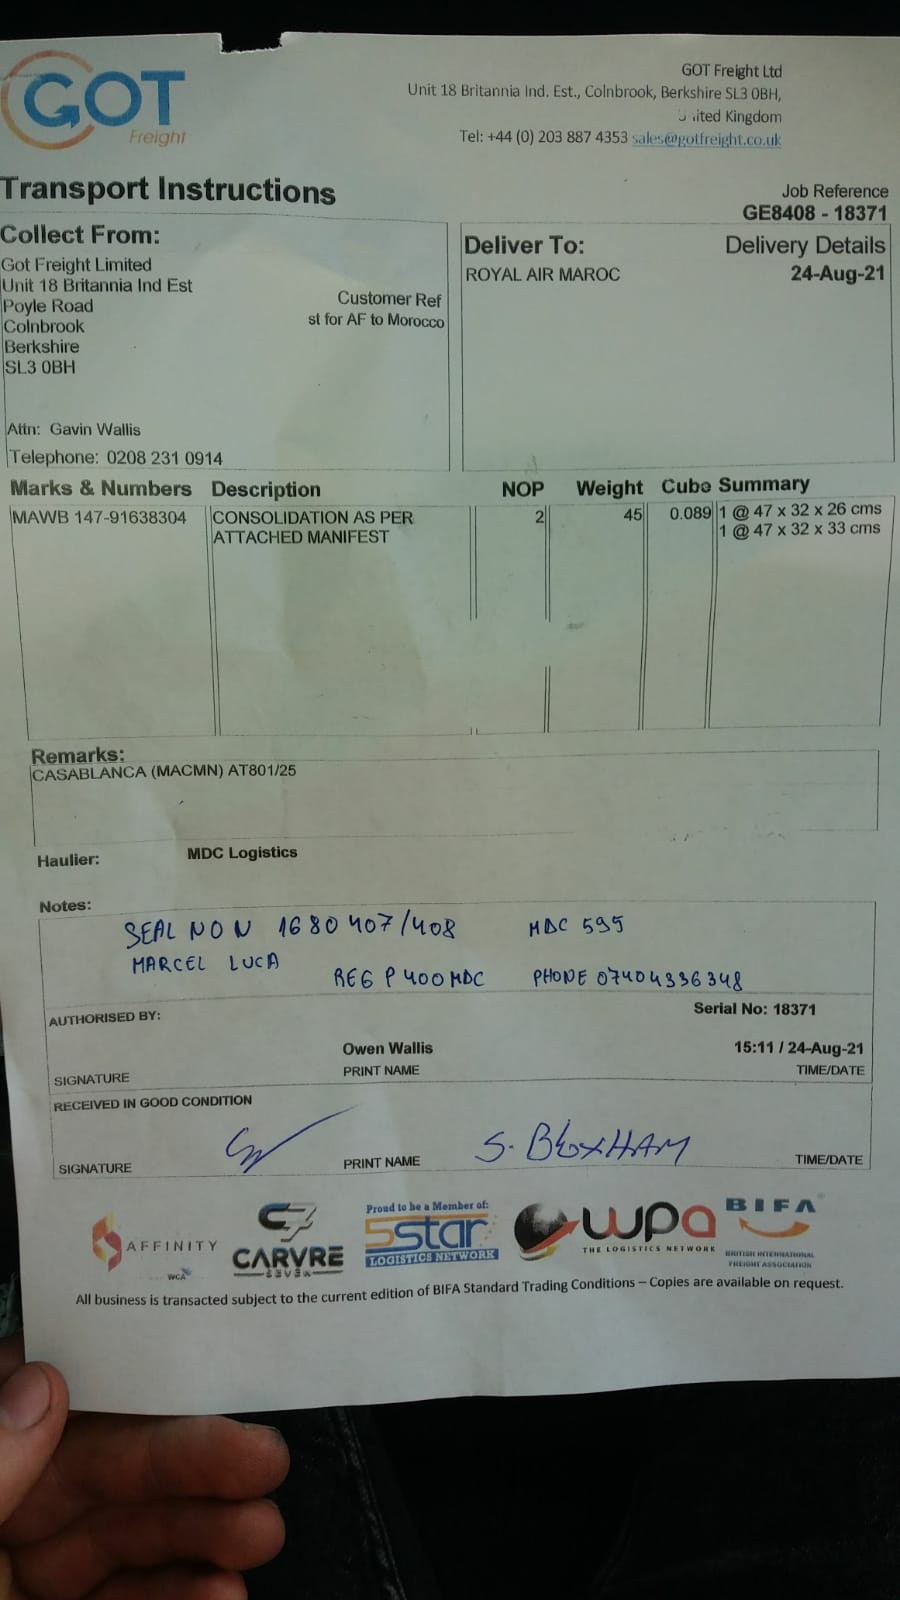 GOT
Freight
GOT Freight Ltd
Unit 18 Britannia Ind. Est., Colnbrook, Berkshire SL3 0BH,
United Kingdom
Tel: +44 (0) 203 887 4353 sales@gotfreight.co.uk
Transport Instructions
Job Reference
GE8408 - 18371
Collect From:
Got Freight Limited
Unit 18 Britannia Ind Est
Poyle Road
Colnbrook
Berkshire
SL3 0BH
Customer Ref
st for AF to Morocco
Attn: Gavin Wallis
Telephone: 0208 231 0914
Deliver To:
ROYAL AIR MAROC
Delivery Details
24-Aug-21
Marks & Numbers Description NOP Weight Cube Summary
MAWB 147-91638304 CONSOLIDATION AS PER 2 45 0.089 1 @ 47 x 32 x 26 cms
ATTACHED MANIFEST 1 @ 47 x 32 x 33 cms
Remarks:
CASABLANCA (MACMN) AT801/25
Haulier: MDC Logistics
Notes:
SEAL NO N 1680407/408 MDC 595
MARCEL LUCA
REG P400MDC PHONE 07404336348
Serial No: 18371
AUTHORISED BY:
Owen Wallis 15:11 / 24-Aug-21
SIGNATURE PRINT NAME TIME/DATE
RECEIVED IN GOOD CONDITION
S. BLOXHAM
SIGNATURE PRINT NAME TIME/DATE
AFFINITY
WCA
CARVRE
SEVEN
Proud to be a Member of:
5star
LOGISTICS NETWORK
wpa
THE LOGISTICS NETWORK
BIFA
BRITISH INTERNATIONAL
FREIGHT ASSOCIATION
All business is transacted subject to the current edition of BIFA Standard Trading Conditions – Copies are available on request.